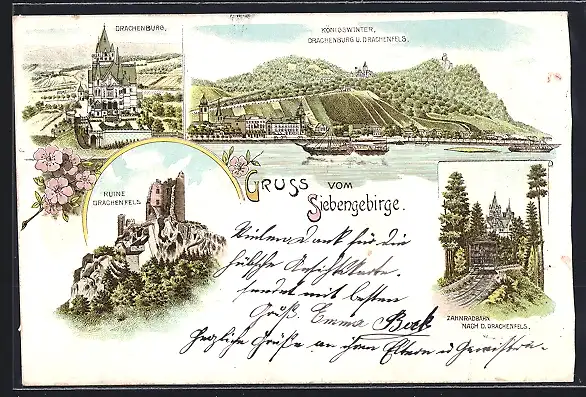 DRACHENBURG.
KÖNIGSWINTER,
DRACHENBURG U. DRACHENFELS.
RUINE
DRACHENFELS.
GRUSS VOM
Siebengebirge.
ZAHNRADBAHN
NACH D. DRACHENFELS.
Vielen Dank für die
hübsche Ansichtskarte.
sendet mit besten
Gruß. Emma Beck
Herzliche Grüße an ihren Eltern u Geschwister.